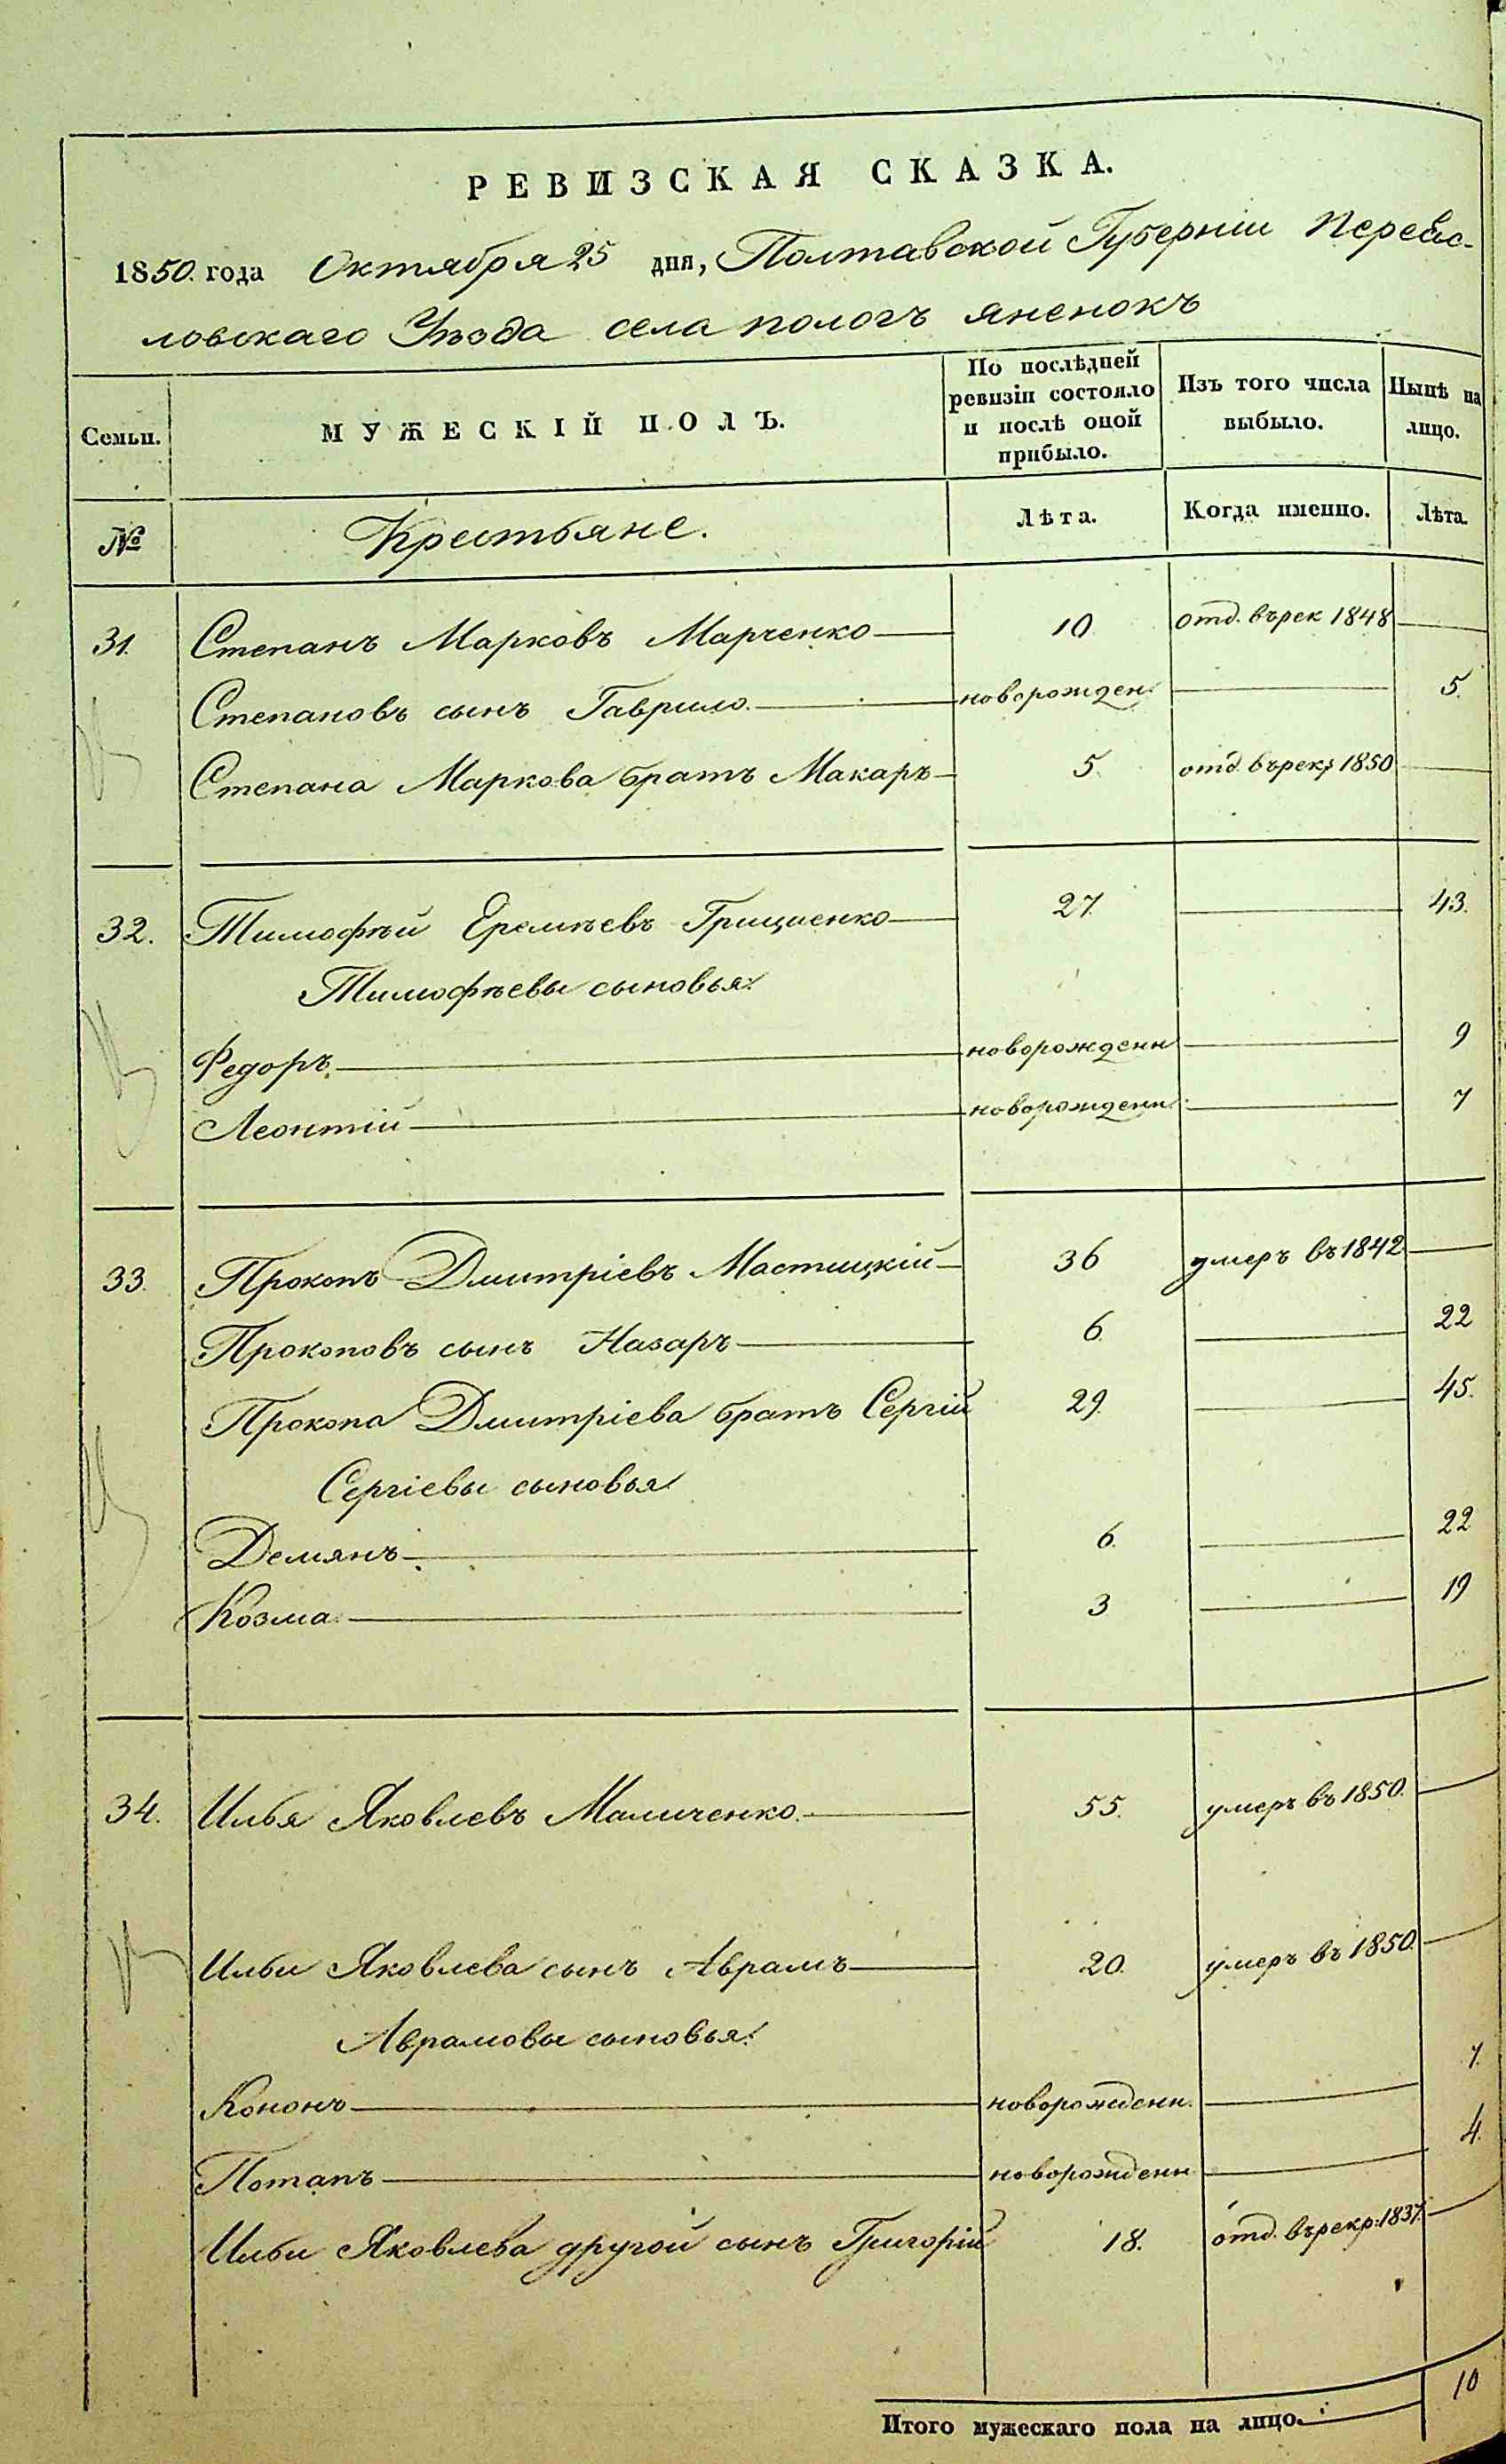 РЕВИЗСКАЯ СКАЗКА.
1850. года Октября 25 дня, Полтавской Губерніи Переяс-
ловскаго Уѣзда села пологъ яненокъ
Семьи.
МУЖЕСКІЙ ПОЛЪ.
По послѣдней ревизіи состояло и послѣ оной прибыло.
Изъ того числа выбыло.
Нынѣ на лицо.
№ Крестьяне. Лѣта. Когда именно. Лѣта.
31. Степанъ Марковъ Марченко 10 отд. въ рек 1848
Степановъ сынъ Гаврило. новорожден. 5.
Степана Маркова братъ Макаръ 5. отд. въ рекр 1850
32. Тимофѣй Еремѣевъ Грициенко 27. 43.
Тимофѣевы сыновья:
Федоръ. новорожденн 9
Леонтій новорожденн. 7
33. Прокопъ Дмитріевъ Мастицкій 36 умеръ въ 1842
Прокоповъ сынъ Назаръ 6. 22
Прокопа Дмитріева братъ Сергій 29. 45.
Сергіевы сыновья
Демянъ. 6. 22
Козма. 3 19
34. Илья Яковлевъ Маличенко. 55. умеръ въ 1850.
Ильи Яковлева сынъ Аврамъ 20. умеръ въ 1850.
Аврамовы сыновья:
Кононъ новорожденн. 7.
Потапъ новорожденн 4.
Ильи Яковлева другой сынъ Григорій 18. отд. въ рекр: 1837.
Итого мужескаго пола на лицо. 10